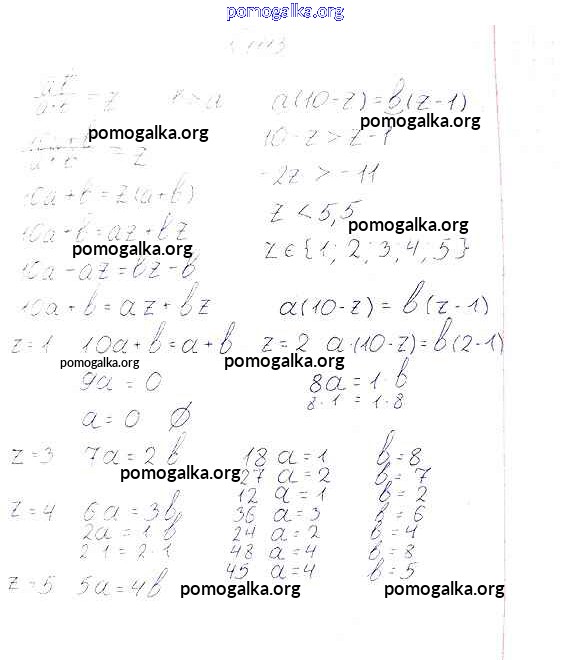 pomogalka.org
1113
= z a a(10-z) = b(z-1)
pomogalka.org pomogalka.org
= z 10-z > z-1
10a+b = z(a+b) -2z > -11
z < 5,5
10a+b = az+bz pomogalka.org
pomogalka.org z ∈ {1; 2; 3; 4; 5}
10a-az = bz-b
10a+b = az+bz a(10-z) = b(z-1)
z=1 10a+b = a+b z=2 a·(10-z) = b(2-1)
pomogalka.org pomogalka.org
9a = 0 8a = 1·b
8·1 = 1·8
a = 0 Ø
z=3 7a = 2b 18 a=1 b=8
pomogalka.org 27 a=2 b=7
12 a=1 b=2
z=4 6a = 3b 36 a=3 b=6
2a = 1·b 24 a=2 b=4
2·1 = 2·1 48 a=4 b=8
45 a=4 b=5
z=5 5a = 4b pomogalka.org pomogalka.org